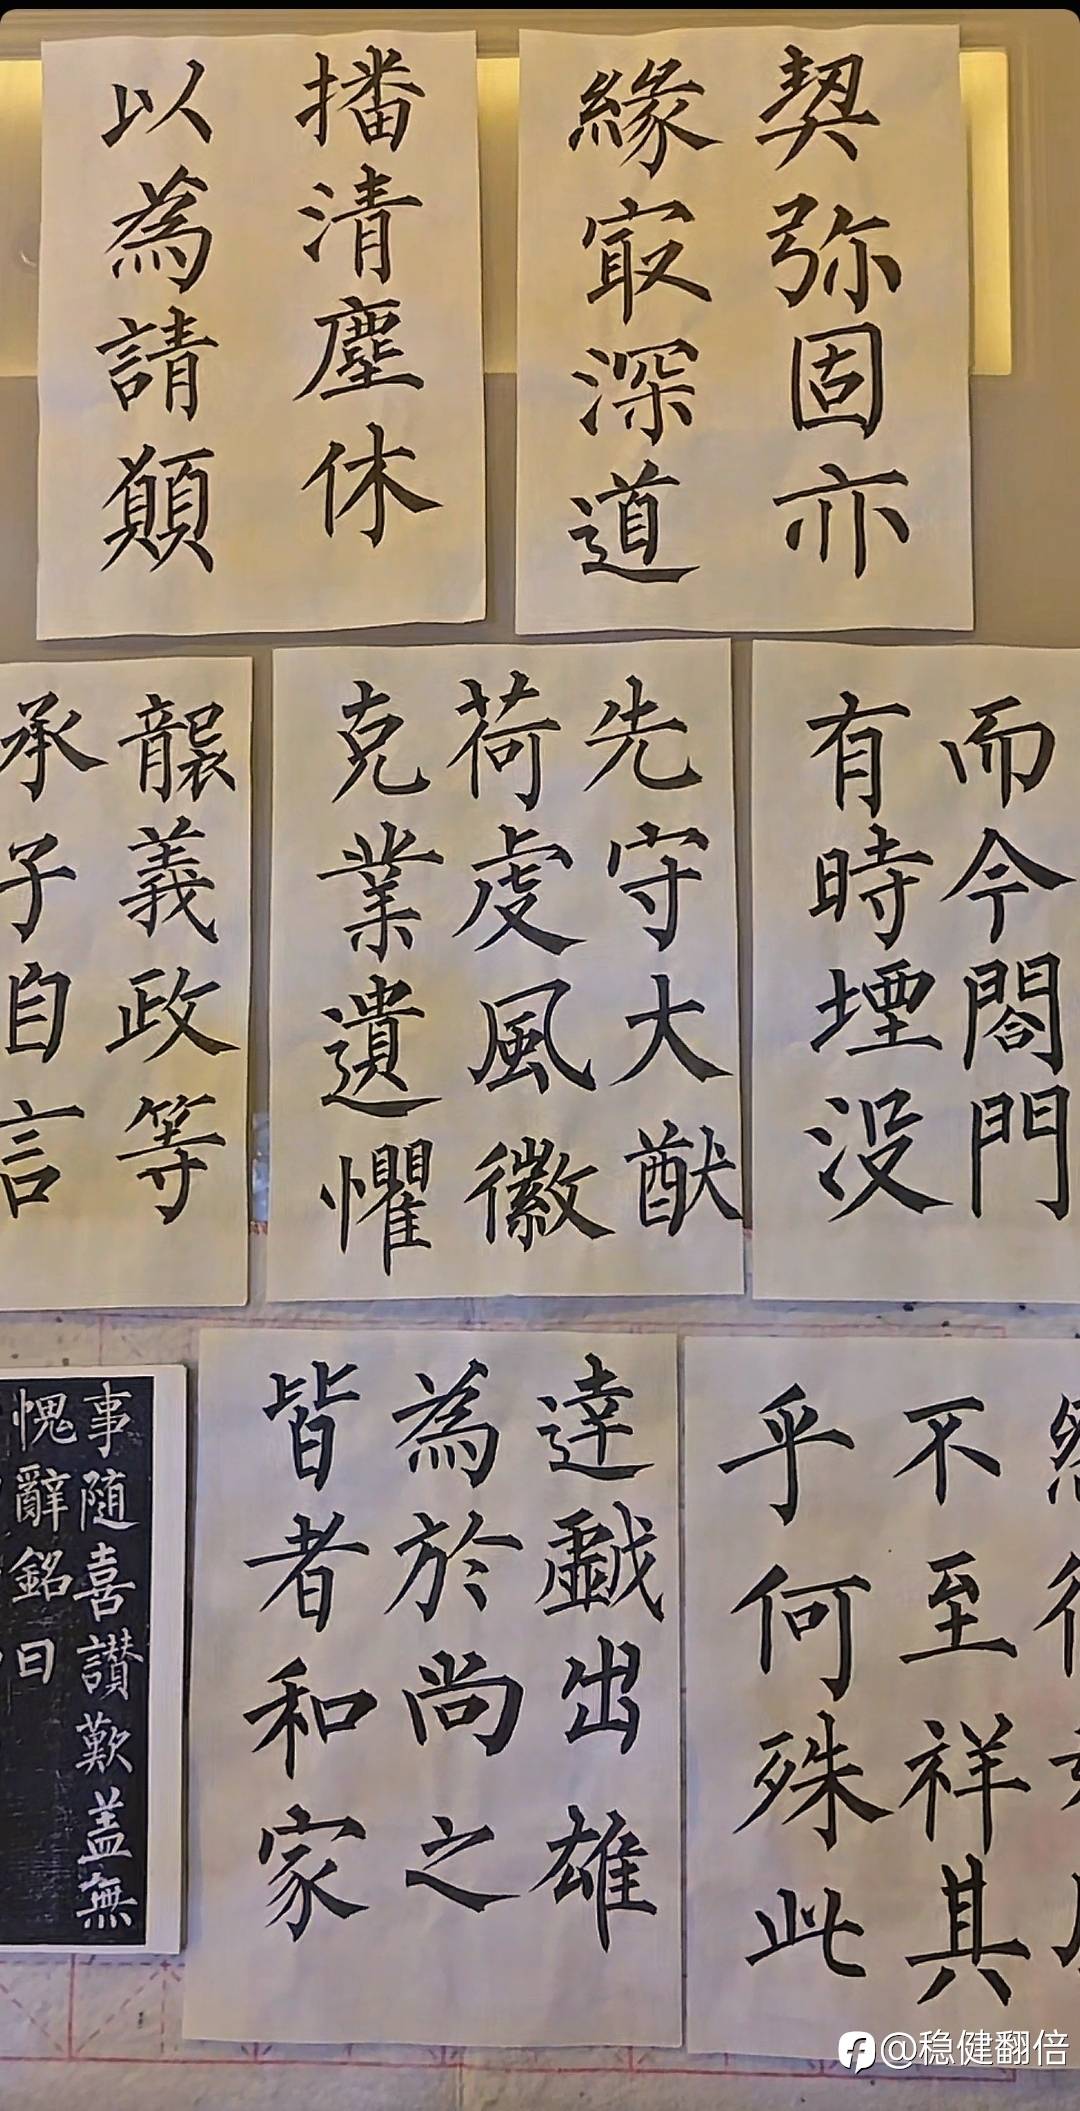 契弥固亦
緣冣深道
播清塵休
以為請顛
而今閤門
有時堙没
先守大猷
荷虔風徽
克業遺懼
襲義政等
承子自言
不至祥其
乎何殊此
達戲出雄
為於尚之
皆者和家
事随喜讃歎盖無
愧辭銘曰
@稳健翻倍